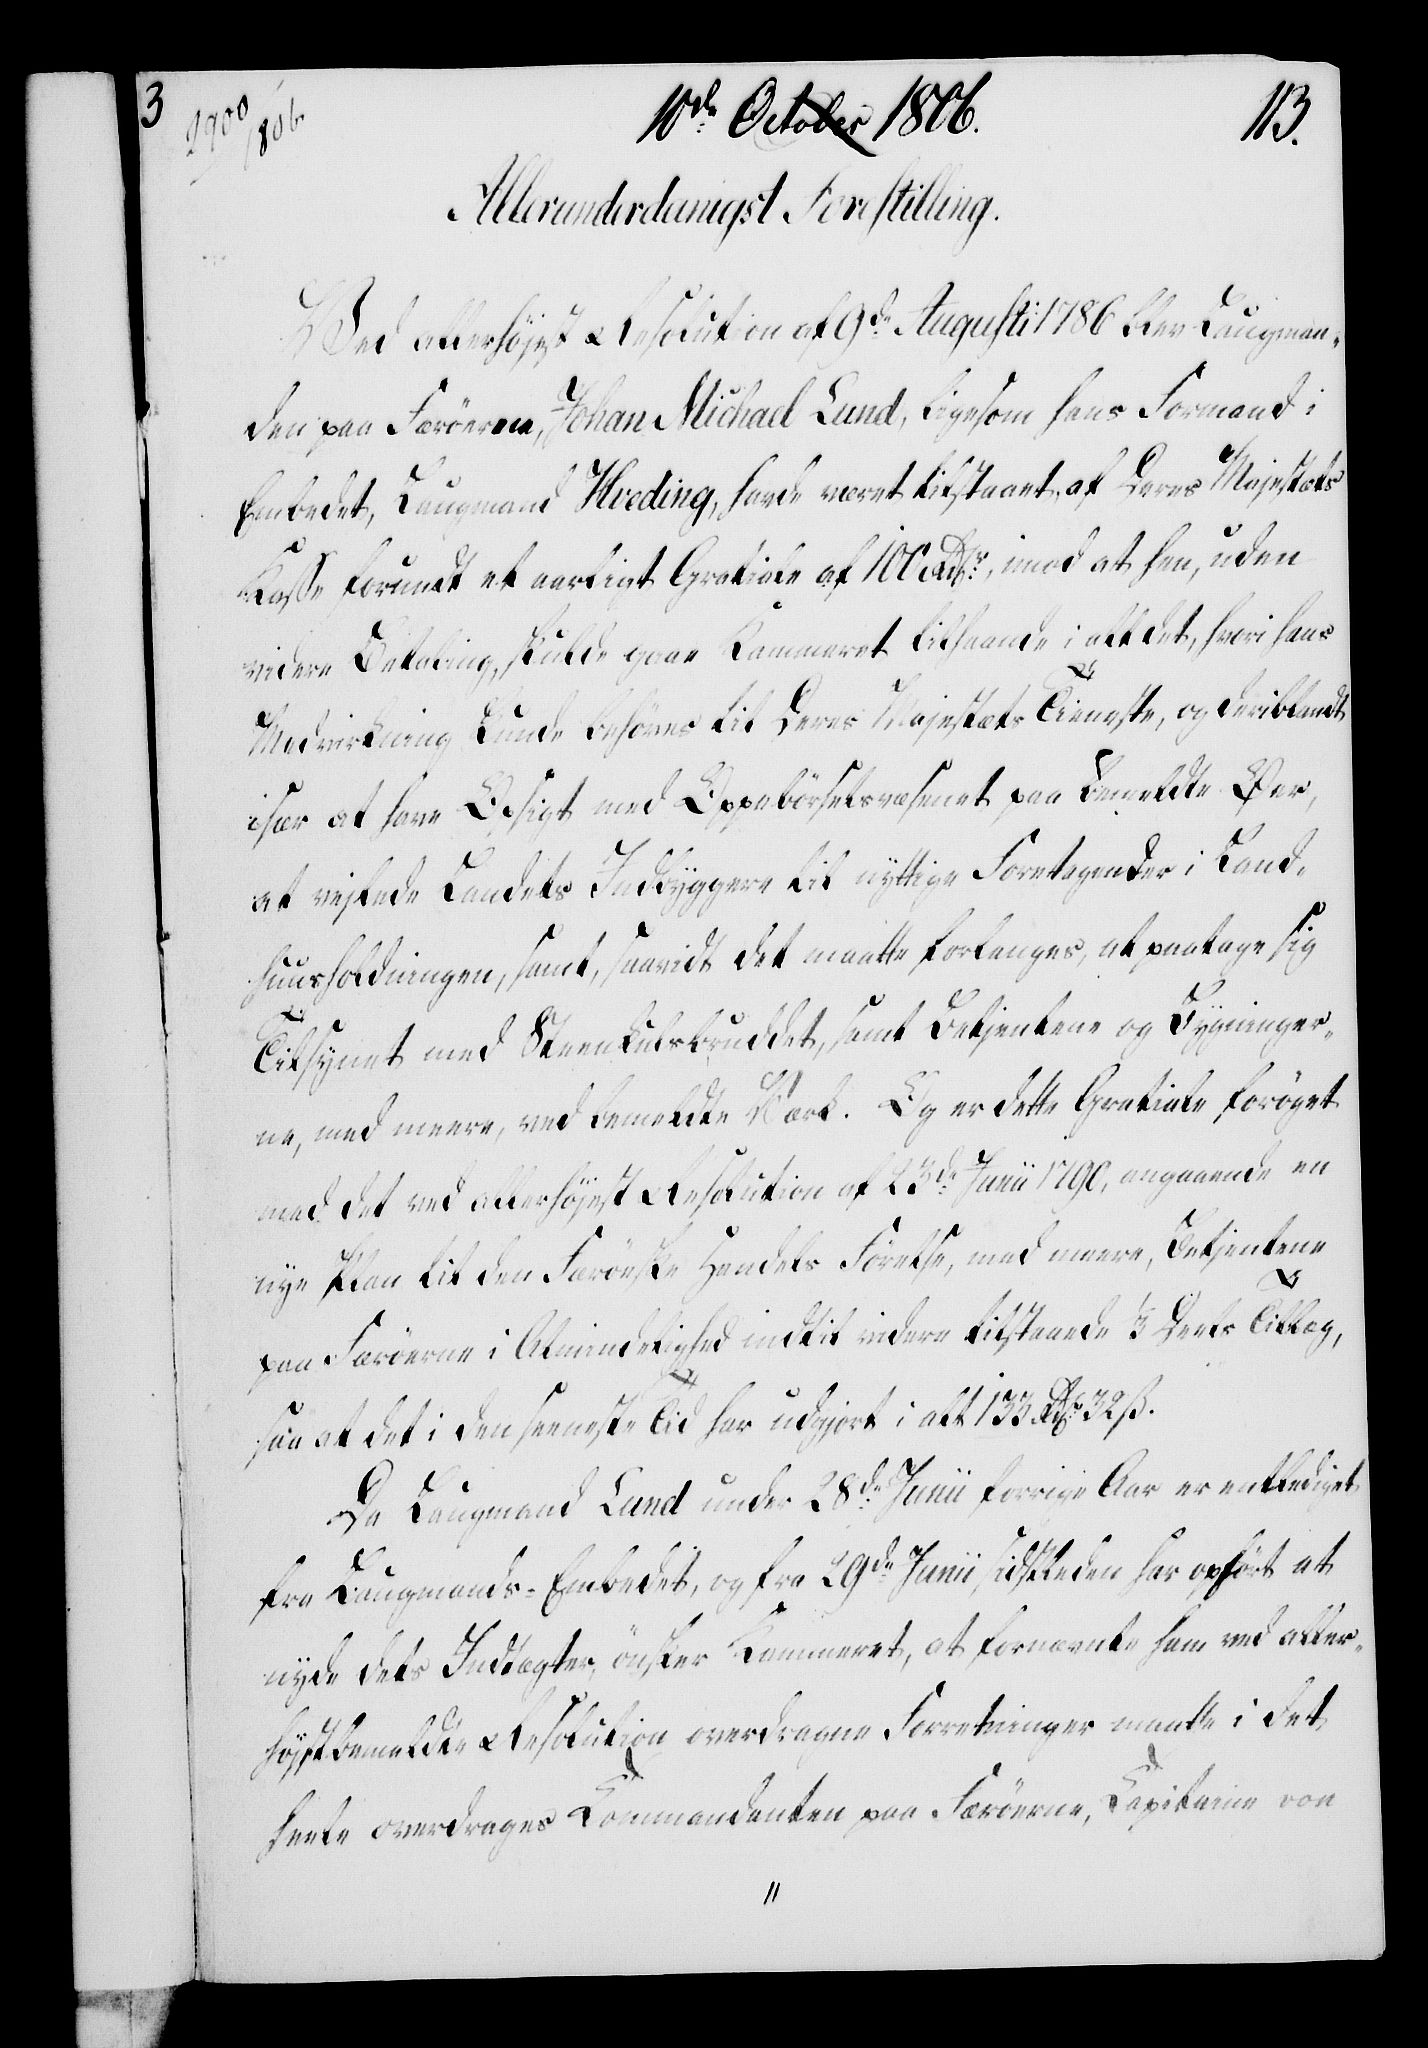 3
2900/1806.
10de October 1806.
113.
Allerunderdanigst Forestilling.
Ved allerhøjest Resolution af 9de Augusti 1786 blev Laugman-
den paa Færöerne, Johan Michael Lund, ligesom hans Formand i
Embedet, Laugmand Hveding, havde været tilstaaet, af Deres Majestæts
Kasse forundt et aarligt Gratiale af 100 Rdr, imod at han, uden
videre Betaling, skulde gaae Kammeret tilhaande i alt det, hvori hans
Medvirkning kunde behöves til Deres Majestæts Tieneste, og deriblandt
især at have Opsigt med Oppebörselsvæsenet paa bemeldte Øer,
at vejlede Landets Indbyggere til nyttige Foretagender i Land-
huusholdningen, samt, saavidt det maatte forlanges, at paatage sig
Tilsynet med Steenkulsbruddet, samt Betjentene og Bygninger-
ne, med meere, ved bemeldte Værk. Og er dette Gratiale foröget
med det ved allerhøjest Resolution af 23de Junii 1790, angaaende en
nye Plan til den Færöeske Handels Förelse, med meere, Betjentene
paa Færöerne i Almindelighed indtil videre tilstaaede 1/3 Deels Tillæg,
saa at det i den seeneste Tid har udgjort i alt 133 Rdr 32 ß.
Da Laugmand Lund under 28de Junii forrige Aar er entlediget
fra Laugmands-Embedet, og fra 29de Junii sidstleden har ophört at
nyde dets Indtægter, önsker Kammeret, at fornævnte ham ved aller-
höjstbemeldte Resolution overdragne Forretninger maatte i det
heele overdrages Commandanten paa Færöerne, Capitaine von
"